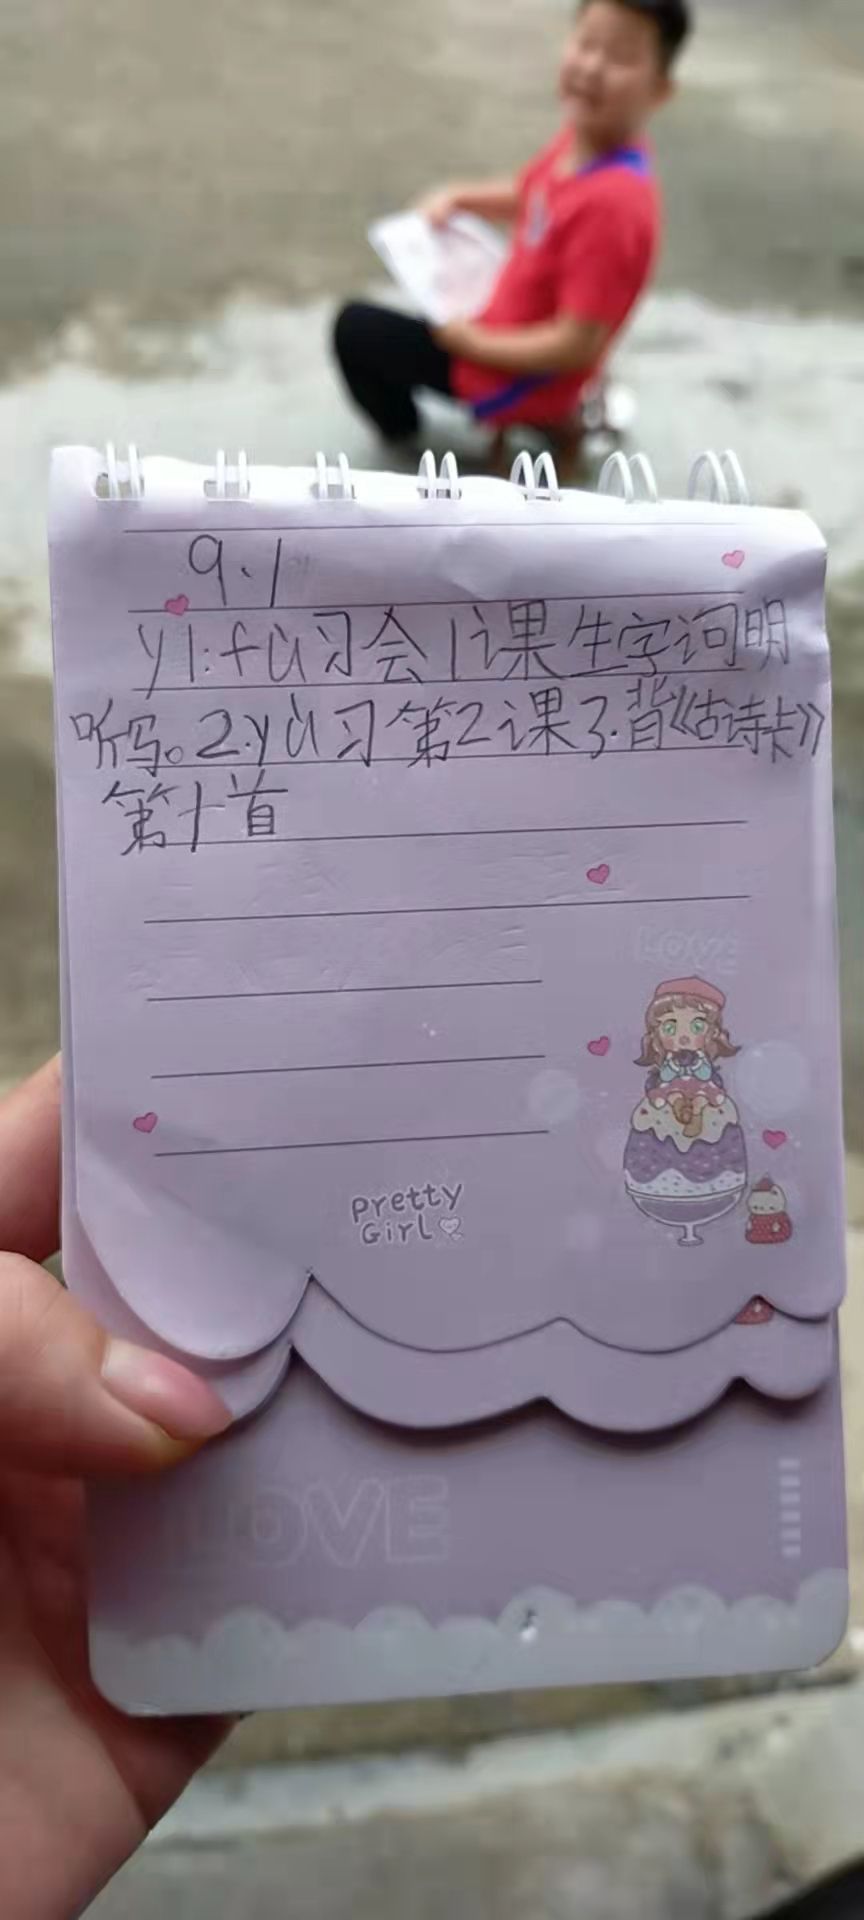 9.1
y1:fù习会1课生字词明
听写。2.yù习第2课3.背《古诗卡》
第十首
LOVE
Pretty
Girl
LOVE